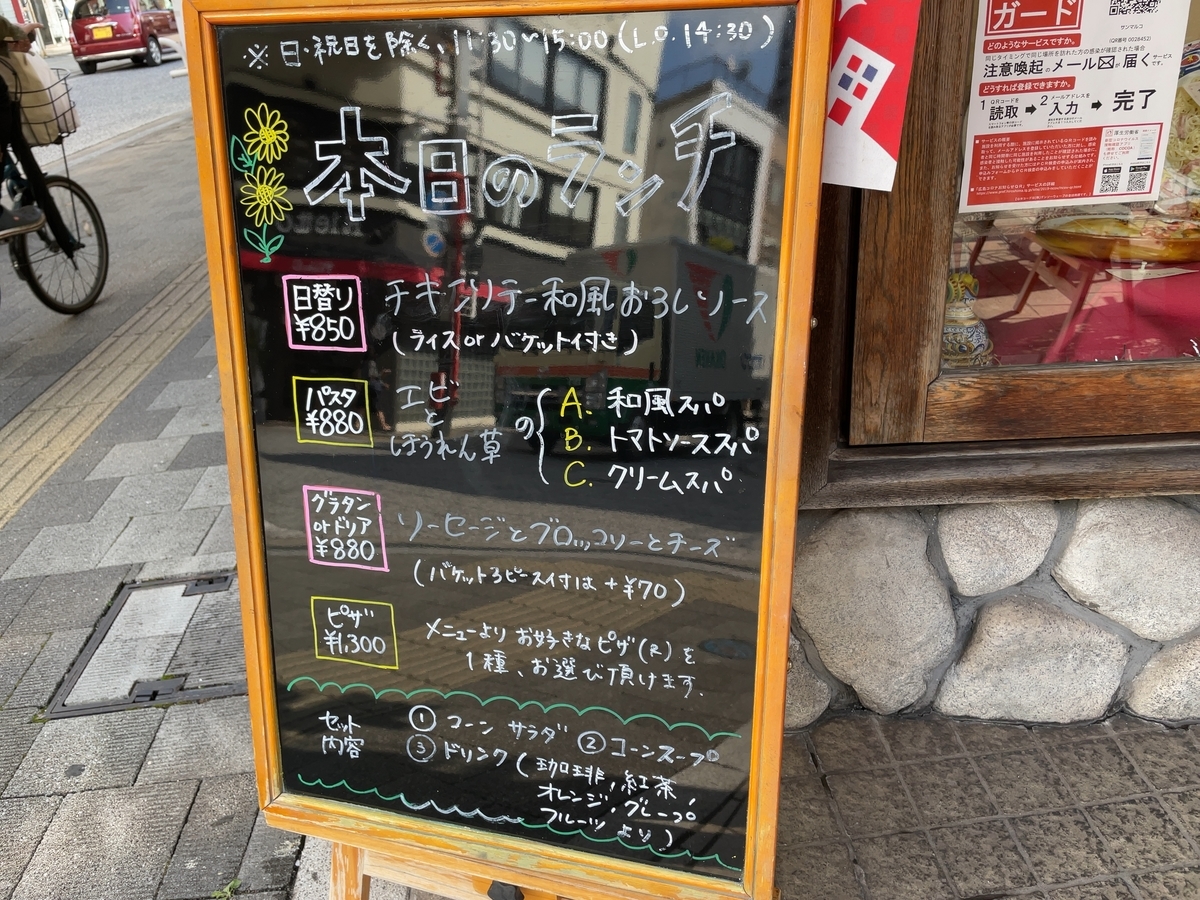 ※日・祝日を除く、11:30〜15:00(L.O.14:30)
本日のランチ
日替り
¥850
チキンソテー和風おろしソース
(ライスorバケット付き)
パスタ
¥880
エビ
と
ほうれん草
の
A. 和風スパ
B. トマトソーススパ
C. クリームスパ
グラタン
orドリア
¥880
ソーセージとブロッコリーとチーズ
(バケット3ピース付は +¥70)
ピザ
¥1,300
メニューよりお好きなピザ(R)を
1種、お選び頂けます.
セット
内容
① コーン サラダ ② コーンスープ
③ ドリンク(珈琲,紅茶,
オレンジ,グレープ
フルーツ より)
ガード
サンマルコ
(QR番号 0028452)
どのようなサービスですか。
同じタイミングで同じ場所を訪れた方の感染が確認された場合
注意喚起のメールが届くサービスです。
どうすれば登録できますか。
1 QRコードを
読取
2 メールアドレスを
入力
完了
厚生労働省